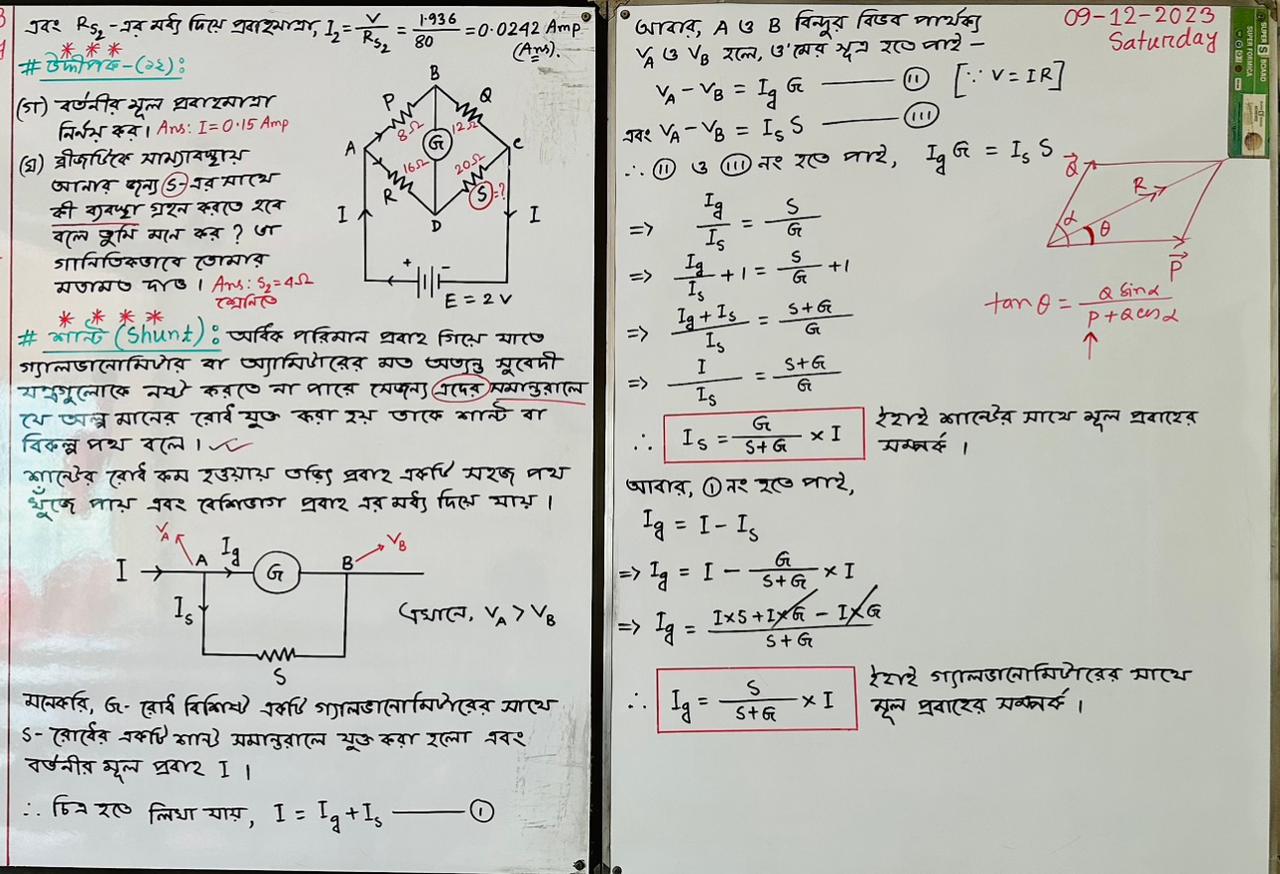 এবং R_S₂-এর মধ্য দিয়ে প্রবাহমাত্রা, I₂ = V/R_S₂ = 1.936/80 = 0.0242 Amp
(Ans).
* * *
# উদ্দীপক-(১২):
(গ) বর্তনীর মূল প্রবাহমাত্রা
নির্নয় কর। Ans: I = 0.15 Amp
(ঘ) ব্রীজটিকে সাম্যাবস্থায়
আনার জন্য S-এর সাথে
কী ব্যবস্থা গ্রহন করতে হবে
বলে তুমি মনে কর? তা
গানিতিকভাবে তোমার
মতামত দাও। Ans: S₂ = 4Ω
শ্রেনিতে
B
P Q
8Ω 12Ω
A G C
16Ω 20Ω
R S = ?
D
I I
+ -
E = 2 V
* * * *
# শান্ট (Shunt): অধিক পরিমান প্রবাহ গিয়ে যাতে
গ্যালভানোমিটার বা অ্যামিটারের মত অত্যন্ত সুবেদী
যন্ত্রগুলোকে নষ্ট করতে না পারে সেজন্য এদের সমান্তরালে
যে অল্প মানের রোধ যুক্ত করা হয় তাকে শান্ট বা
বিকল্প পথ বলে।
শান্টের রোধ কম হওয়ায় তড়িৎ প্রবাহ একটি সহজ পথ
খুঁজে পায় এবং বেশিভাগ প্রবাহ এর মধ্য দিয়ে যায়।
V_A V_B
I A I_g G B
I_s
S
এখানে, V_A > V_B
মনেকরি, G- রোধ বিশিষ্ট একটি গ্যালভানোমিটারের সাথে
S- রোধের একটি শান্ট সমান্তরালে যুক্ত করা হলো এবং
বর্তনীর মূল প্রবাহ I ।
∴ চিত্র হতে লিখা যায়, I = I_g + I_s —— ①
09-12-2023
Saturday
আবার, A ও B বিন্দুর বিভব পার্থক্য
V_A ও V_B হলে, ও'মের সূত্র হতে পাই -
V_A - V_B = I_g G —— ⑪ [∵ V = IR]
এবং V_A - V_B = I_s S —— (III)
∴ ⑪ ও (III) নং হতে পাই, I_g G = I_s S
=> I_g/I_s = S/G
=> I_g/I_s + 1 = S/G + 1
=> (I_g + I_s)/I_s = (S+G)/G
=> I/I_s = (S+G)/G
∴ I_s = G/(S+G) × I ইহাই শান্টের সাথে মূল প্রবাহের
সম্পর্ক।
Q R
α θ
P
tan θ = Q sin α/(P + Q cos α)
আবার, ① নং হতে পাই,
I_g = I - I_s
=> I_g = I - G/(S+G) × I
=> I_g = (I×S + I×G - I×G)/(S+G)
∴ I_g = S/(S+G) × I ইহাই গ্যালভানোমিটারের সাথে
মূল প্রবাহের সম্পর্ক।
SUPER BOARD
SUPER FORMICA